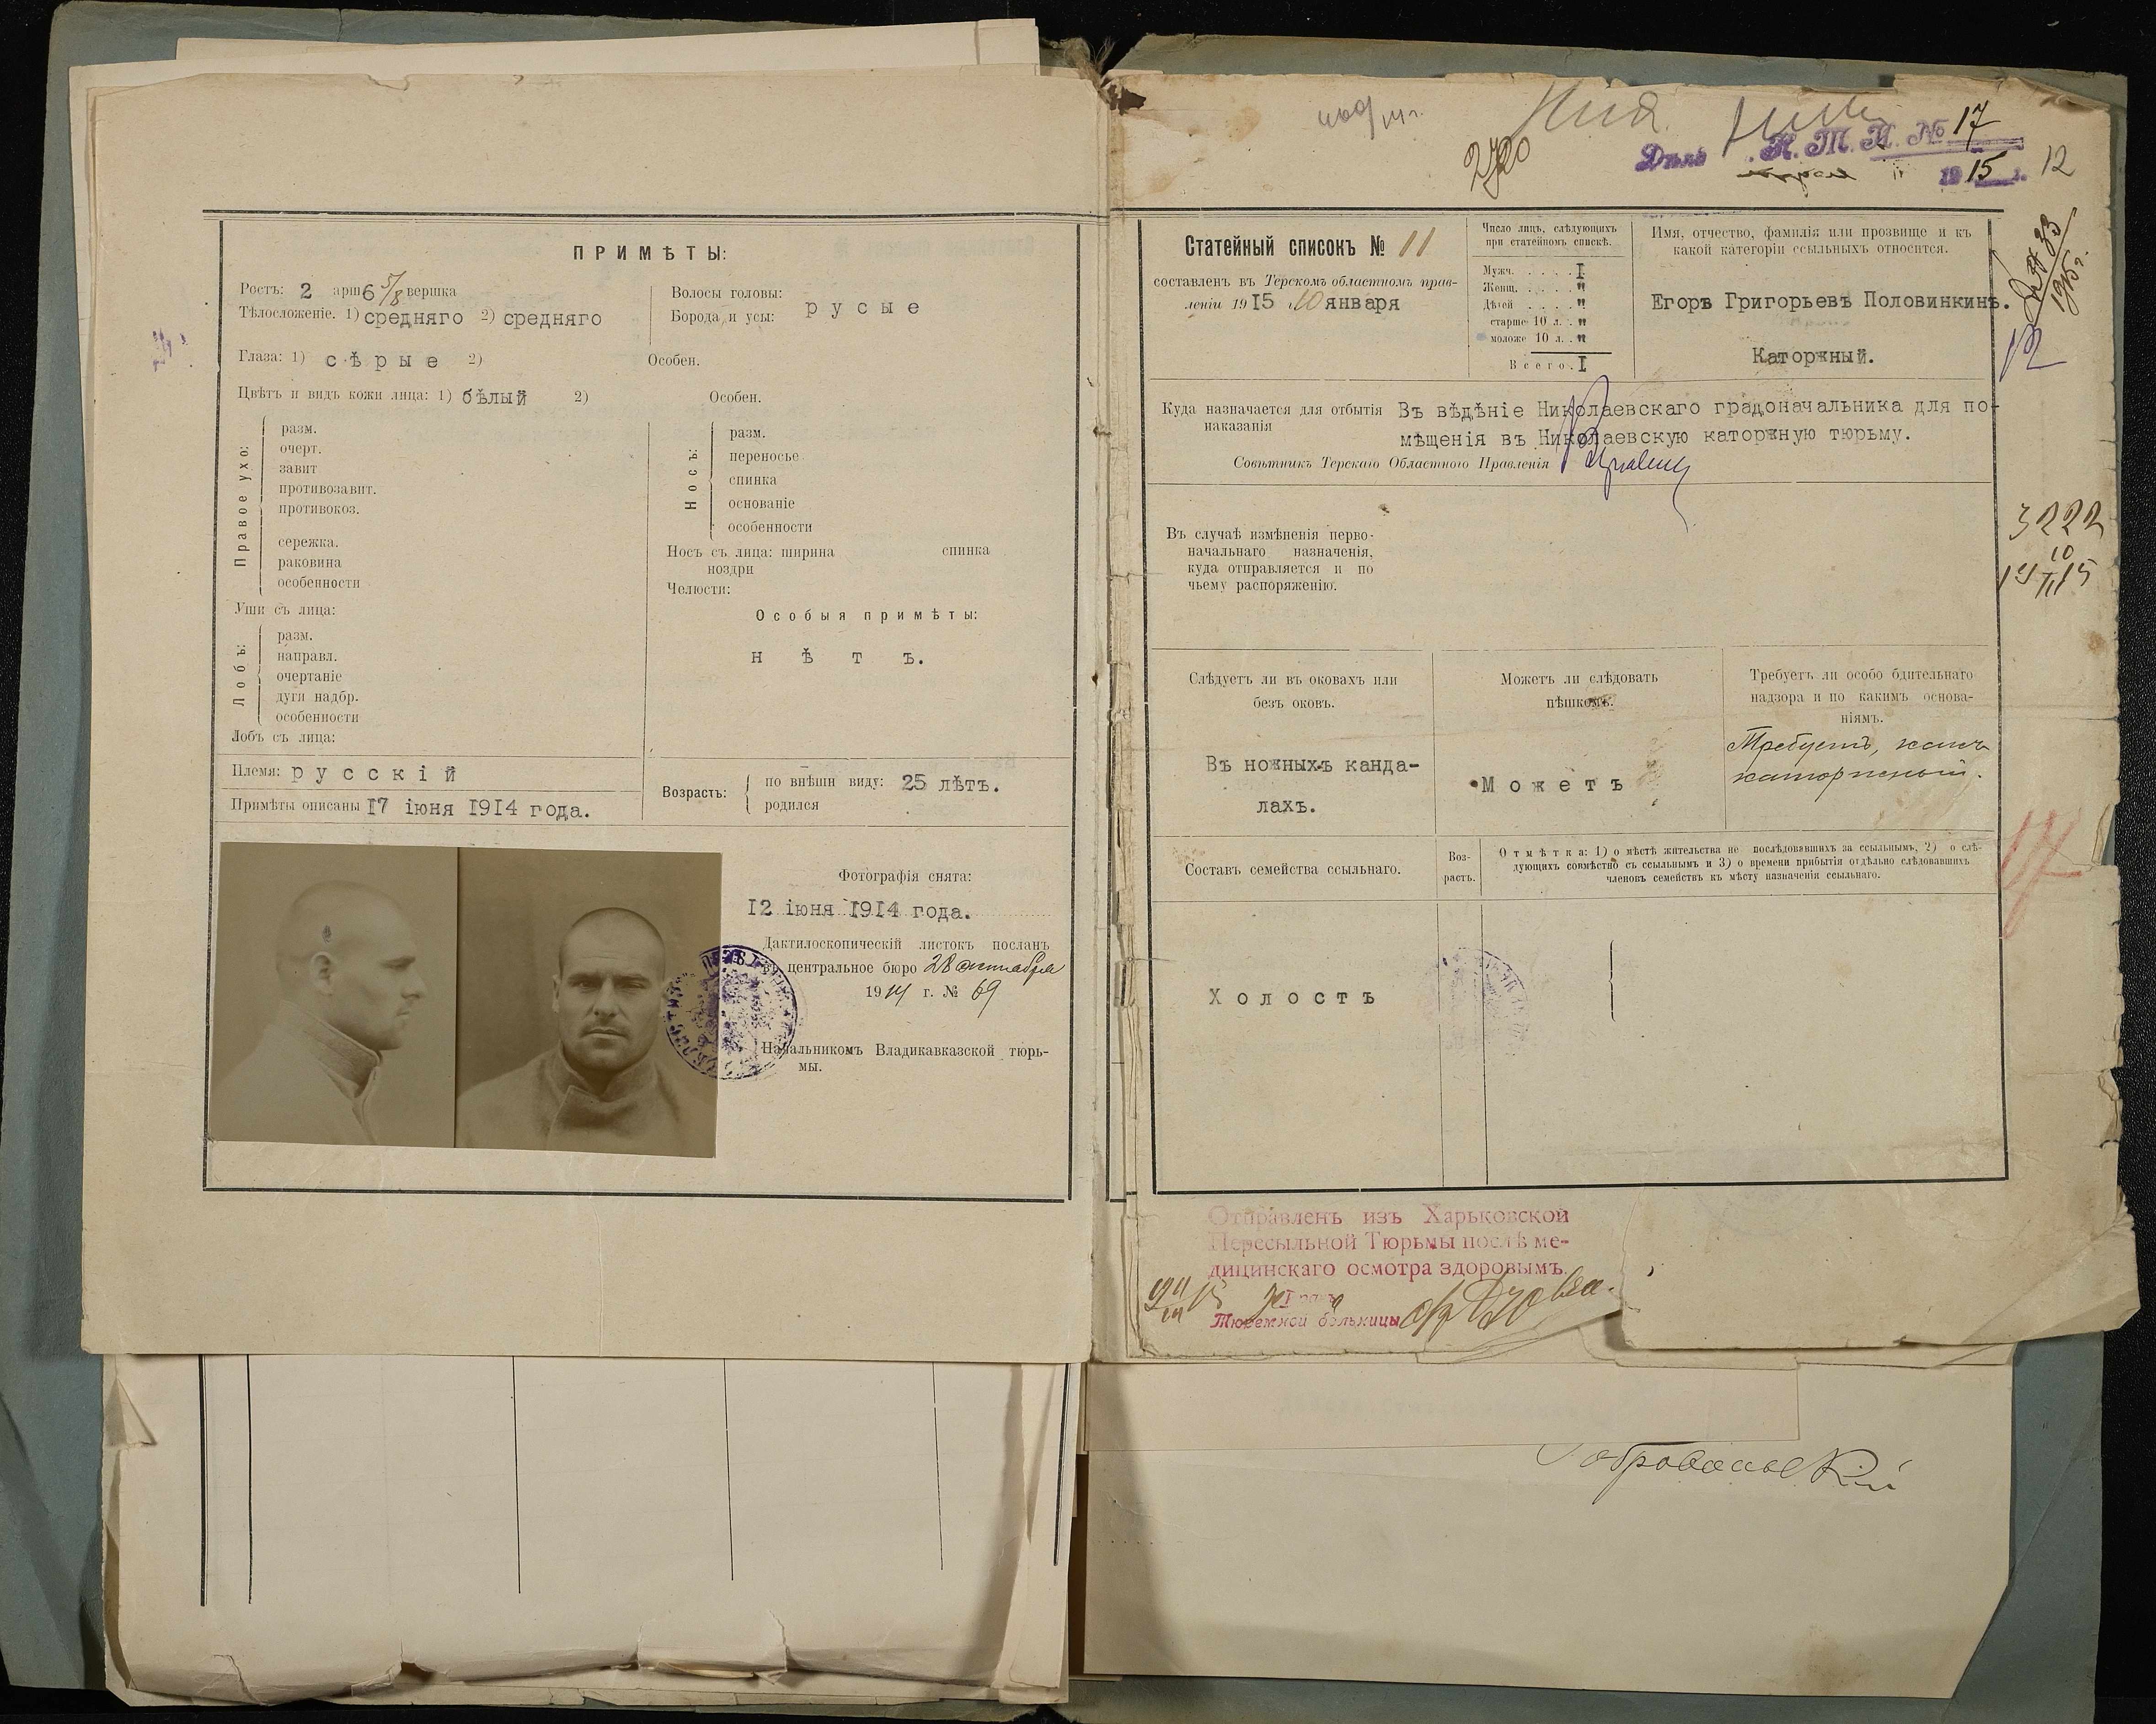 ПРИМѢТЫ:
Ростъ: 2 арш 6 5/8 вершка
Тѣлосложеніе. 1) средняго 2) средняго
Глаза: 1) сѣрые 2)
Цвѣтъ и видъ кожи лица: 1) бѣлый 2)
Правое ухо:
разм.
очерт.
завит
противозавит.
противокоз.
сережка.
раковина
особенности
Уши съ лица:
Лобъ:
разм.
направл.
очертаніе
дуги надбр.
особенности
Лобъ съ лица:
Волосы головы:
Борода и усы: русые
Особен.
Особен.
Носъ:
разм.
переносье
спинка
основаніе
особенности
Носъ съ лица: ширина спинка
ноздри
Челюсти:
Особыя примѣты:
нѣтъ.
Племя: русскій
Примѣты описаны 17 іюня 1914 года.
Возрастъ:
по внѣшн виду: 25 лѣтъ.
родился
Фотографія снята:
12 іюня 1914 года.
Дактилоскопическій листокъ посланъ
въ центральное бюро 28 октября
1914 г. № 69
Начальникомъ Владикавказской тюрь-
мы.
Дѣло К. Т. Н. № 17
1915 г. 12
Статейный списокъ № 11
составленъ въ Терскомъ областномъ прав-
леніи 1915 10 января
Число лицъ, слѣдующихъ
при статейномъ спискѣ.
Мужч. . . . . I
Женщ. . . . . "
Дѣтей . . . . "
старше 10 л. . "
моложе 10 л. . "
Всего. I
Имя, отчество, фамилія или прозвище и къ
какой категоріи ссыльныхъ относится.
Егоръ Григорьевъ Половинкинъ.
Каторжный.
12
Куда назначается для отбытія
наказанія
Въ вѣдѣніе Николаевскаго градоначальника для по-
мѣщенія въ Николаевскую каторжную тюрьму.
Совѣтникъ Терскаго Областного Правленія
Въ случаѣ измѣненія перво-
начальнаго назначенія,
куда отправляется и по
чьему распоряженію.
3222
Слѣдуетъ ли въ оковахъ или
безъ оковъ.
Въ ножныхъ канда-
лахъ.
Можетъ ли слѣдовать
пѣшкомъ.
Можетъ
Требуетъ ли особо бдительнаго
надзора и по какимъ основа-
ніямъ.
Требуетъ, какъ
каторжный.
17
Составъ семейства ссыльнаго.
Воз-
растъ.
Отмѣтка: 1) о мѣстѣ жительства не послѣдовавшихъ за ссыльнымъ, 2) о слѣ-
дующихъ совмѣстно съ ссыльнымъ и 3) о времени прибытія отдѣльно слѣдовавшихъ
членовъ семействъ къ мѣсту назначенія ссыльнаго.
Холостъ
Отправленъ изъ Харьковской
Пересыльной Тюрьмы послѣ ме-
дицинскаго осмотра здоровымъ.
Тюремной больницы